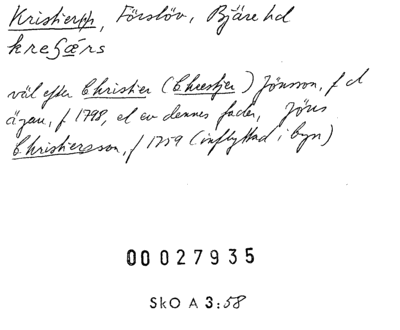 Kristierp, Förslöv, Bjäre hd
kreʃærs
väl efter Christier (Chrestier) Jönsson, f d
ägare, f 1798, el ev dennes fader, Jöns
Christiersson, f 1759 (inflyttad i byn)
00027935
SkO A 3:58